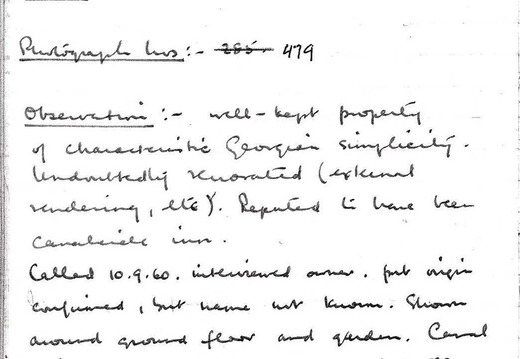 Photograph Nos:- 285. 479
Observation :- well-kept property
of characteristic Georgian simplicity.
Undoubtedly renovated (external
rendering, etc). Reputed to have been
canalside inn.
Called 10.9.60. interviewed owner. pub origin
confirmed, but name not known. Shown
around ground floor and garden. Canal